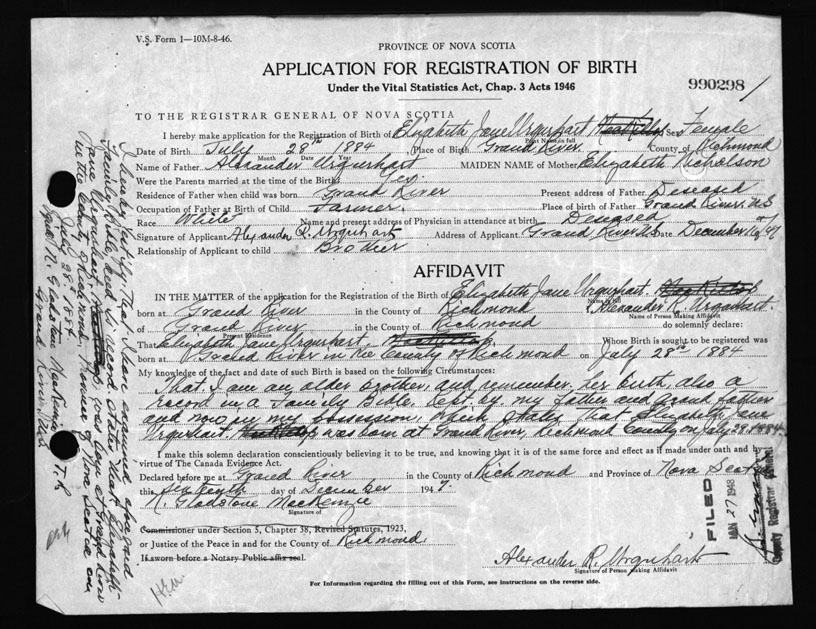 V.S. Form 1—10M-8-46.
PROVINCE OF NOVA SCOTIA
APPLICATION FOR REGISTRATION OF BIRTH
Under the Vital Statistics Act, Chap. 3 Acts 1946
990298 /
TO THE REGISTRAR GENERAL OF NOVA SCOTIA
I hereby make application for the Registration of Birth of Elizabeth Jane Urquhart Sex Female
Print Name in full
Date of Birth July 28th 1884 Place of Birth Grand River. County of Richmond
Month Date Year
Name of Father Alexander Urquhart MAIDEN NAME of Mother Elizabeth Nicholson
Were the Parents married at the time of the Birth Yes.
Residence of Father when child was born Grand River Present address of Father Deseased
Occupation of Father at Birth of Child Farmer Place of birth of Father Grand River N.S
Race Name and present address of Physician in attendance at birth Deseased
Signature of Applicant Alexander R. Urquhart Address of Applicant Grand River N.S Date December 10th/47
Relationship of Applicant to child Brother
AFFIDAVIT
IN THE MATTER of the application for the Registration of Birth of Elizabeth Jane Urquhart.
Name in full
born at Grand River in the County of Richmond I, Alexander R. Urquhart.
Name of Person Making Affidavit
of Grand River in the County of Richmond do solemnly declare:
Present Residence
That Elizabeth Jane Urquhart, Whose Birth is sought to be registered was
born at Grand River in the County of Richmond on July 28th 1884
My knowledge of the fact and date of such Birth is based on the following Circumstances:
That I am an older brother, and remember her birth, also a
record in a Family Bible, kept by my father and grand father
and now in my possession, which states that Elizabeth Jane
Urquhart. was born at Grand River, Richmond County on July 28 1884.
I make this solemn declaration conscientiously believing it to be true, and knowing that it is of the same force and effect as if made under oath and by
virtue of The Canada Evidence Act.
Declared before me at Grand River in the County of Richmond and Province of Nova Scotia
this day of December 1947.
N. Gladstone MacKenzie
Signature of
Commissioner under Section 5, Chapter 38, Revised Statutes, 1923,
or Justice of the Peace in and for the County of Richmond.
If sworn before a Notary Public affix seal.
Alexander R. Urquhart
Signature of Person Making Affidavit
For Information regarding the filling out of this Form, see instructions on the reverse side.
FILED
JAN 27 1948
Deputy Registrar General
I hereby certify that I have examined aforesaid
Family Bible and said record states that Elizabeth
Jane Urquhart, was born at Grand River
in the County of Richmond, Province of Nova Scotia on
July 28. 1884
Sgd. N. Gladstone MacKenzie J. P.
Grand River, N.S